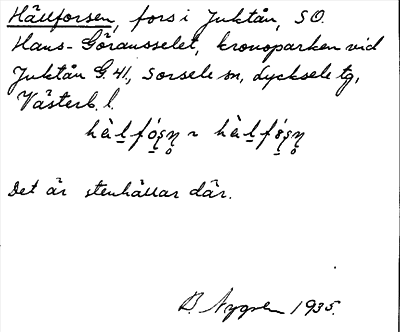 Hällforsen, fors i Juktån, SO.
Hans-Göransselet, kronoparken vid
Juktån G. 41, Sorsele sn, Lycksele tg,
Västerb. l.
Det är stenhällar där.
B. Nygren 1935.